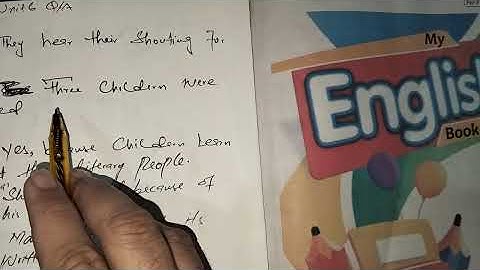 Unit 6 Q/A
They hear their Shouting For
Three Childern were
ed
Yes, because Childern Learn
the literary people.
because of
his Hs
Ma
Writ
My
English
Book